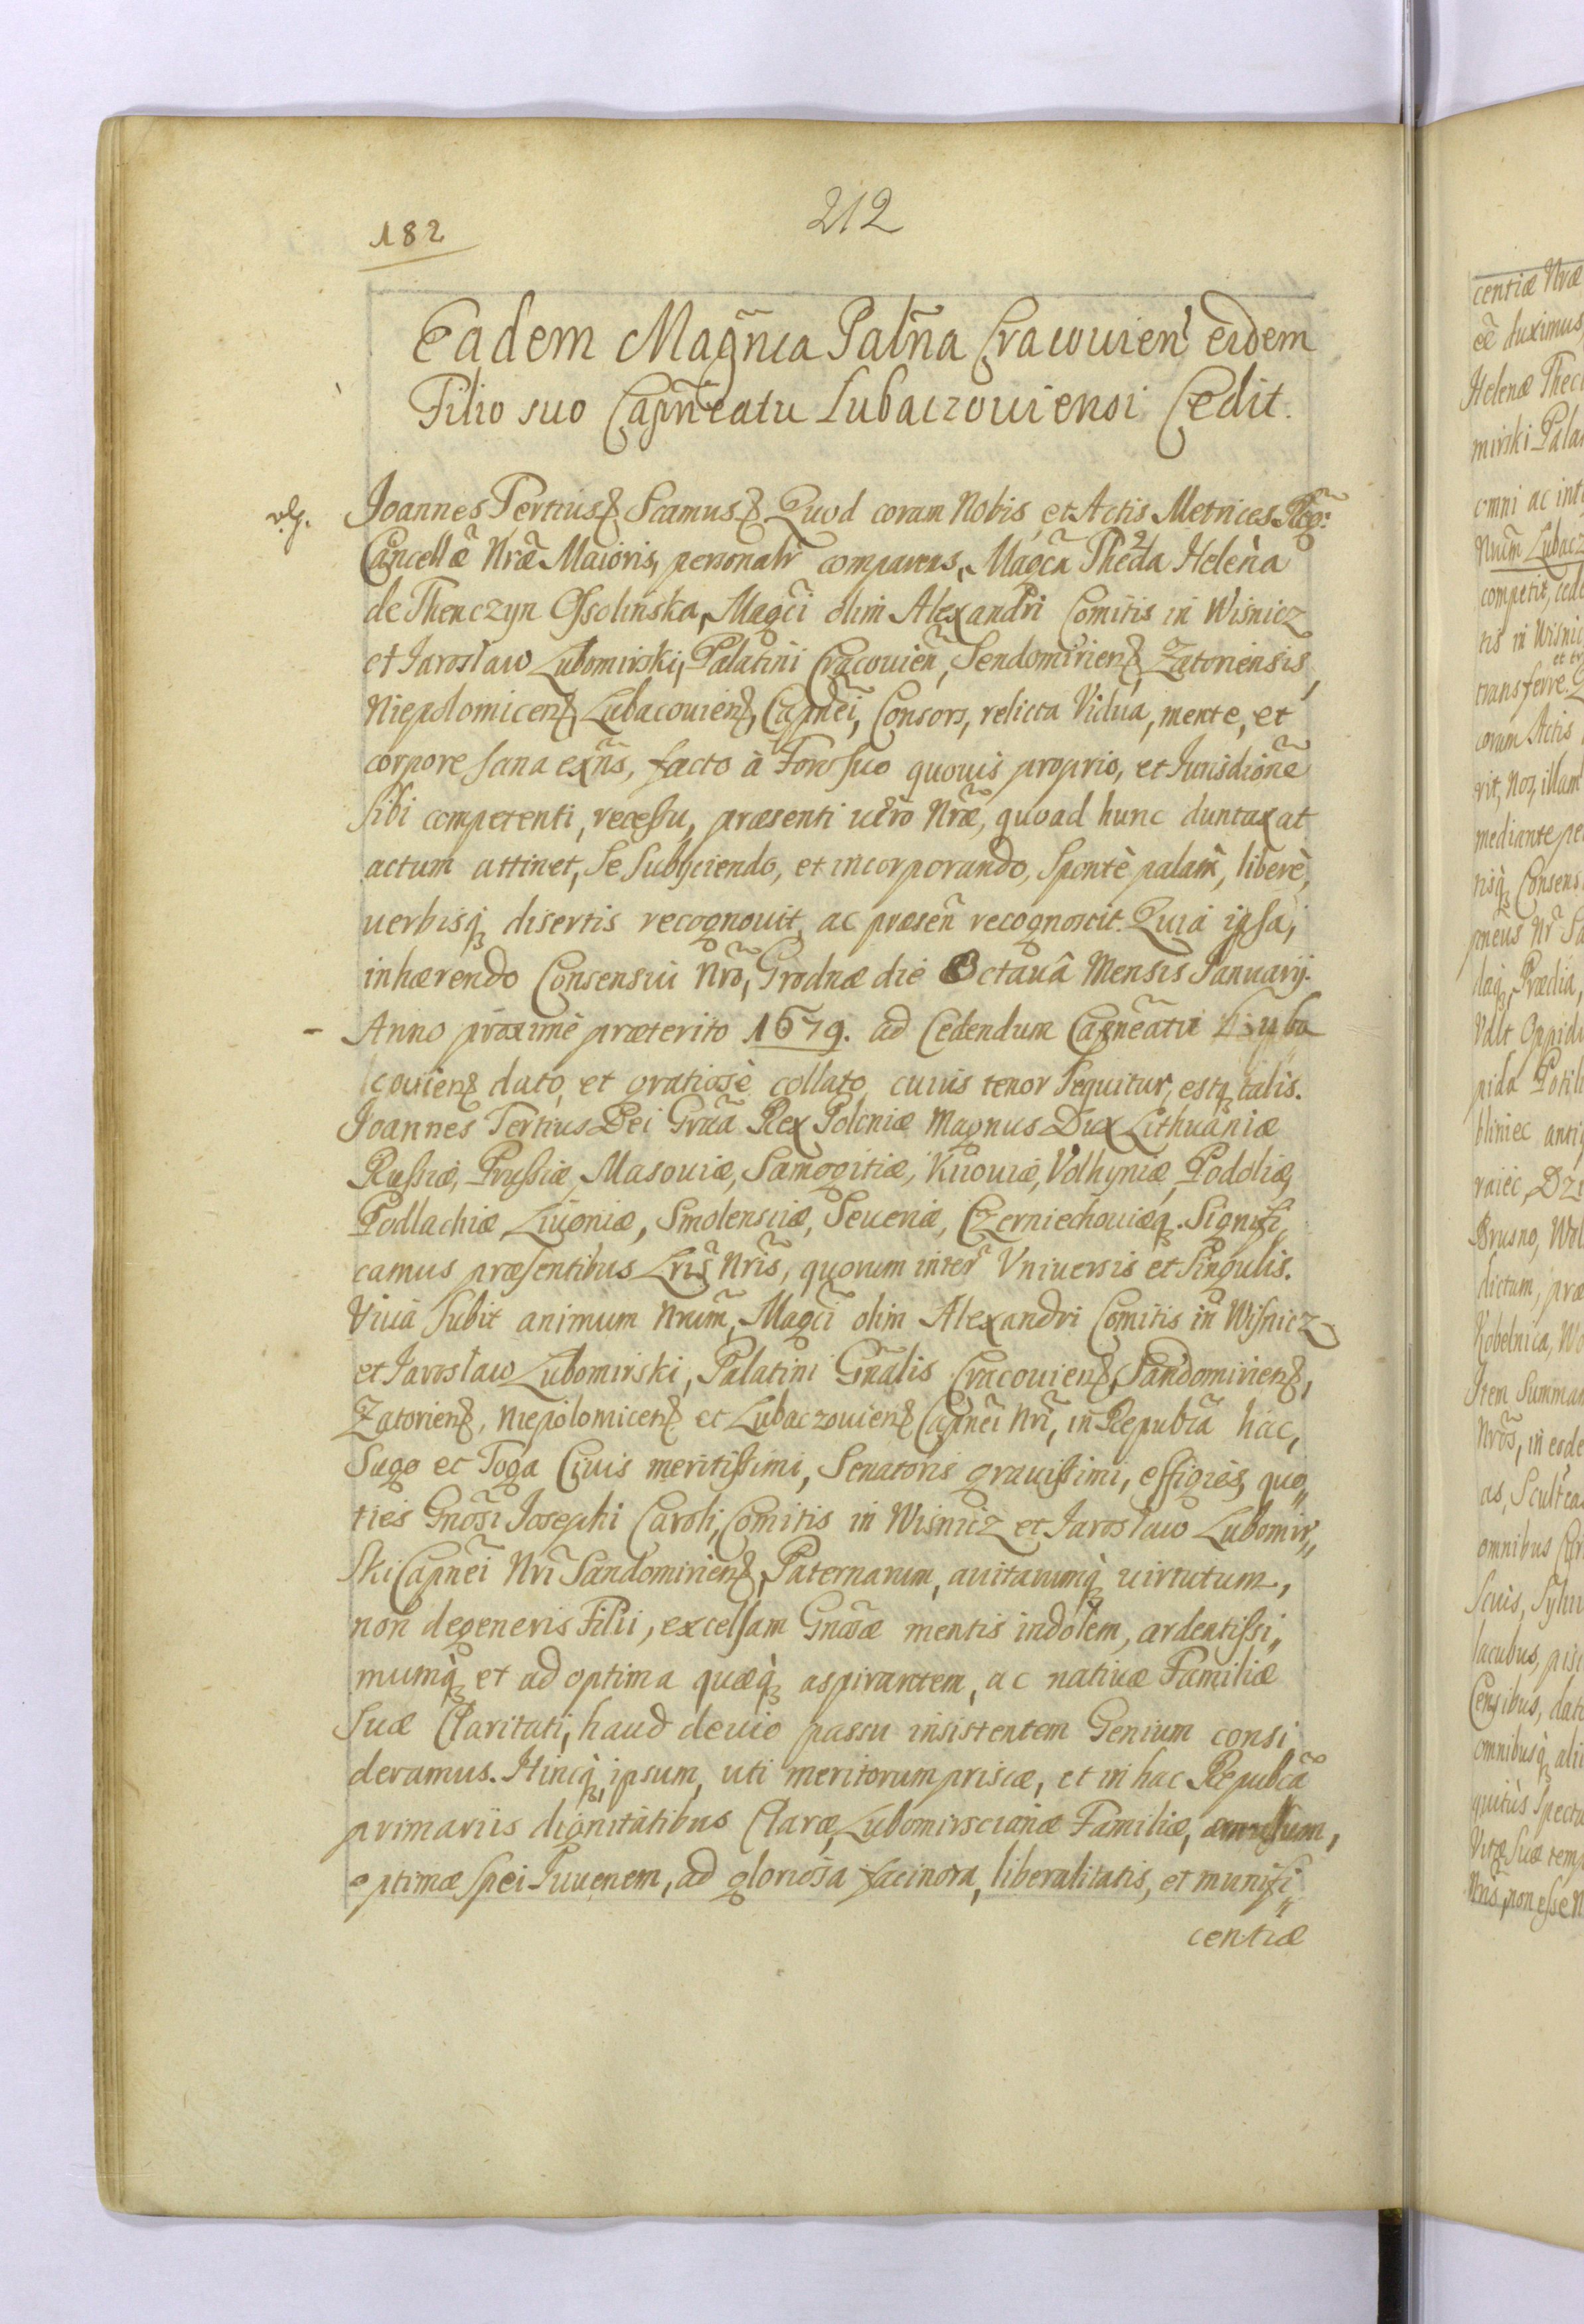 212
182
Eadem Magñca Palña Cracouien̄ eidem
Filio suo Capñeatu Lubaczouiensi Cedit.
Joannes Tertius Scamus Quod coram Nobis, et Actis Metrices Reg̃:
Cancellæ Nr̃æ Maioris, personalr̃ comparens, Magca Theda Helena
de Thenczyn Ossolińska, Magci olim Alexandri Comitis in Wiśnicz
et Jarosław Lubomirski, Palatini Cracouień, Sendomirien, Zatoriensis,
Niepolomicen, Lubacouien, Capnei, Consors, relicta Vidua, mente, et
corpore sana exñs, facto à Foro suo quouis proprio, et Jurisdiõne
sibi competenti, recessu, præsenti uero Nr̃æ, quoad hunc duntaxat
actum attinet, se subijciendo, et incorporando, sponte palam, liberè,
uerbisq disertis recognouit, ac præseñ recognoscit. Quia ipsa,
inhærendo Consensui Nr̃o, Grodnæ die Octauâ Mensis Januarij.
Anno proximè præterito 1679. ad Cedendum Capñeatu Luba
couien dato, et gratiosè collato, cuius tenor sequitur, estq talis.
Joannes Tertius Dei Gr̃a Rex Poloniæ Magnus Dux Lithuaniæ
Russiæ, Prussiæ, Masouiæ, Samogitiæ, Kijouiæ, Volhyniæ, Podoliæ,
Podlachiæ Liuoniæ, Smolensciæ, Seueriæ, Czerniechouiæq. Signifi„
camus præsentibus Lr̃is Nr̃is, quorum inter̃ Vniuersis et Singulis.
Viua subit animum Nrum̃, Magci olim Alexandri Comitis in Wisnicz
et Jarosław Lubomirski, Palatini Gñalis Cracouien, Sandomirien,
Zatorien, Niepolomicen et Lubaczouien Capñei Nr̃i, in Republ̃ca hac,
Sago et Toga Ciuis meritissimi, Senatoris grauissimi, effigies, quo„
ties Gnõsi Josephi Caroli, Comitis in Wiśnicz et Jarosław Lubomir„
ski Capñei Nr̃i Sandomirien, Paternarum, auitarumq uirtutum,
non degeneris Filii, excelsam Gnosæ mentis indolem, ardentissi„
mumq et ad optima quæq aspirantem, ac natiuæ Familiæ
suæ Claritati, haud deuio passu insistentem Genium consi
deramus. Hincq ipsum, uti meritorum priscæ, et in hac Republcã
primariis dignitatibus Claræ, Lubomirscianæ Familiæ,
optimæ spei Juuenem, ad gloriosa facinora, liberalitatis, et munifi„
centiæ